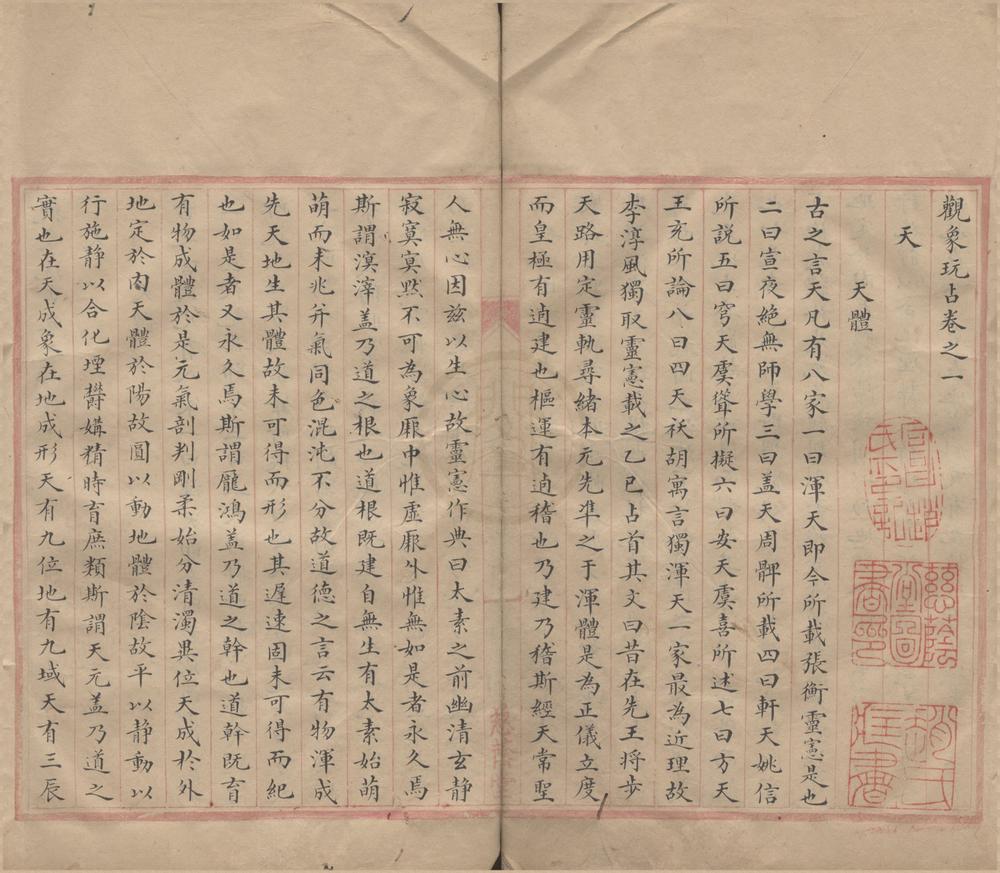 觀象玩占卷之一
天
天體
古之言天凡有八家一曰渾天即今所載張衡靈憲是也
二曰宣夜絕無師學三曰蓋天周髀所載四曰軒天姚信
所説五曰穹天虞聳所擬六曰安天虞喜所述七曰方天
王充所論八曰四天祅胡寓言獨渾天一家最為近理故
李淳風獨取靈憲載之乙巳占首其文曰昔在先王將步
天路用定靈軌尋緒本元先凖之于渾體是為正儀立度
而皇極有逌建也樞運有逌稽也乃建乃稽斯經天常聖
人無心因茲以生心故靈憲作典曰太素之前幽清玄静
寂寞冥默不可為象厥中惟虛厥外惟無如是者永久焉
斯謂溟涬蓋乃道之根也道根既建自無生有太素始萌
萌而未兆并氣同色混沌不分故道德之言云有物渾成
先天地生其體故未可得而形也其遲速固未可得而紀
也如是者又永久焉斯謂龐鴻蓋乃道之幹也道幹既育
有物成體於是元氣剖判剛柔始分清濁異位天成於外
地定於内天體於陽故圓以動地體於陰故平以静動以
行施静以合化堙欝媾精時育庶類斯謂天元蓋乃道之
實也在天成象在地成形天有九位地有九域天有三辰
慈蔭堂圖書印